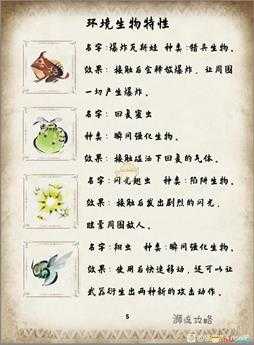 环境生物特性
名字:爆炸瓦斯蛙 种类:猎兵生物。
效果:接触后会释放爆炸,让周围
一切产生爆炸。
名字:回复蜜虫
种类:瞬间强化生物。
效果:接触碰洒下回复的气体。
名字:闪光翅虫 种类:陷阱生物。
效果:接触后发出剧烈的闪光,
眩晕周围敌人。
名字:翔虫 种类:瞬间强化生物。
效果:使用后快速移动,还可以让
武器衍生出两种新的攻击动作。
5
游返攻略